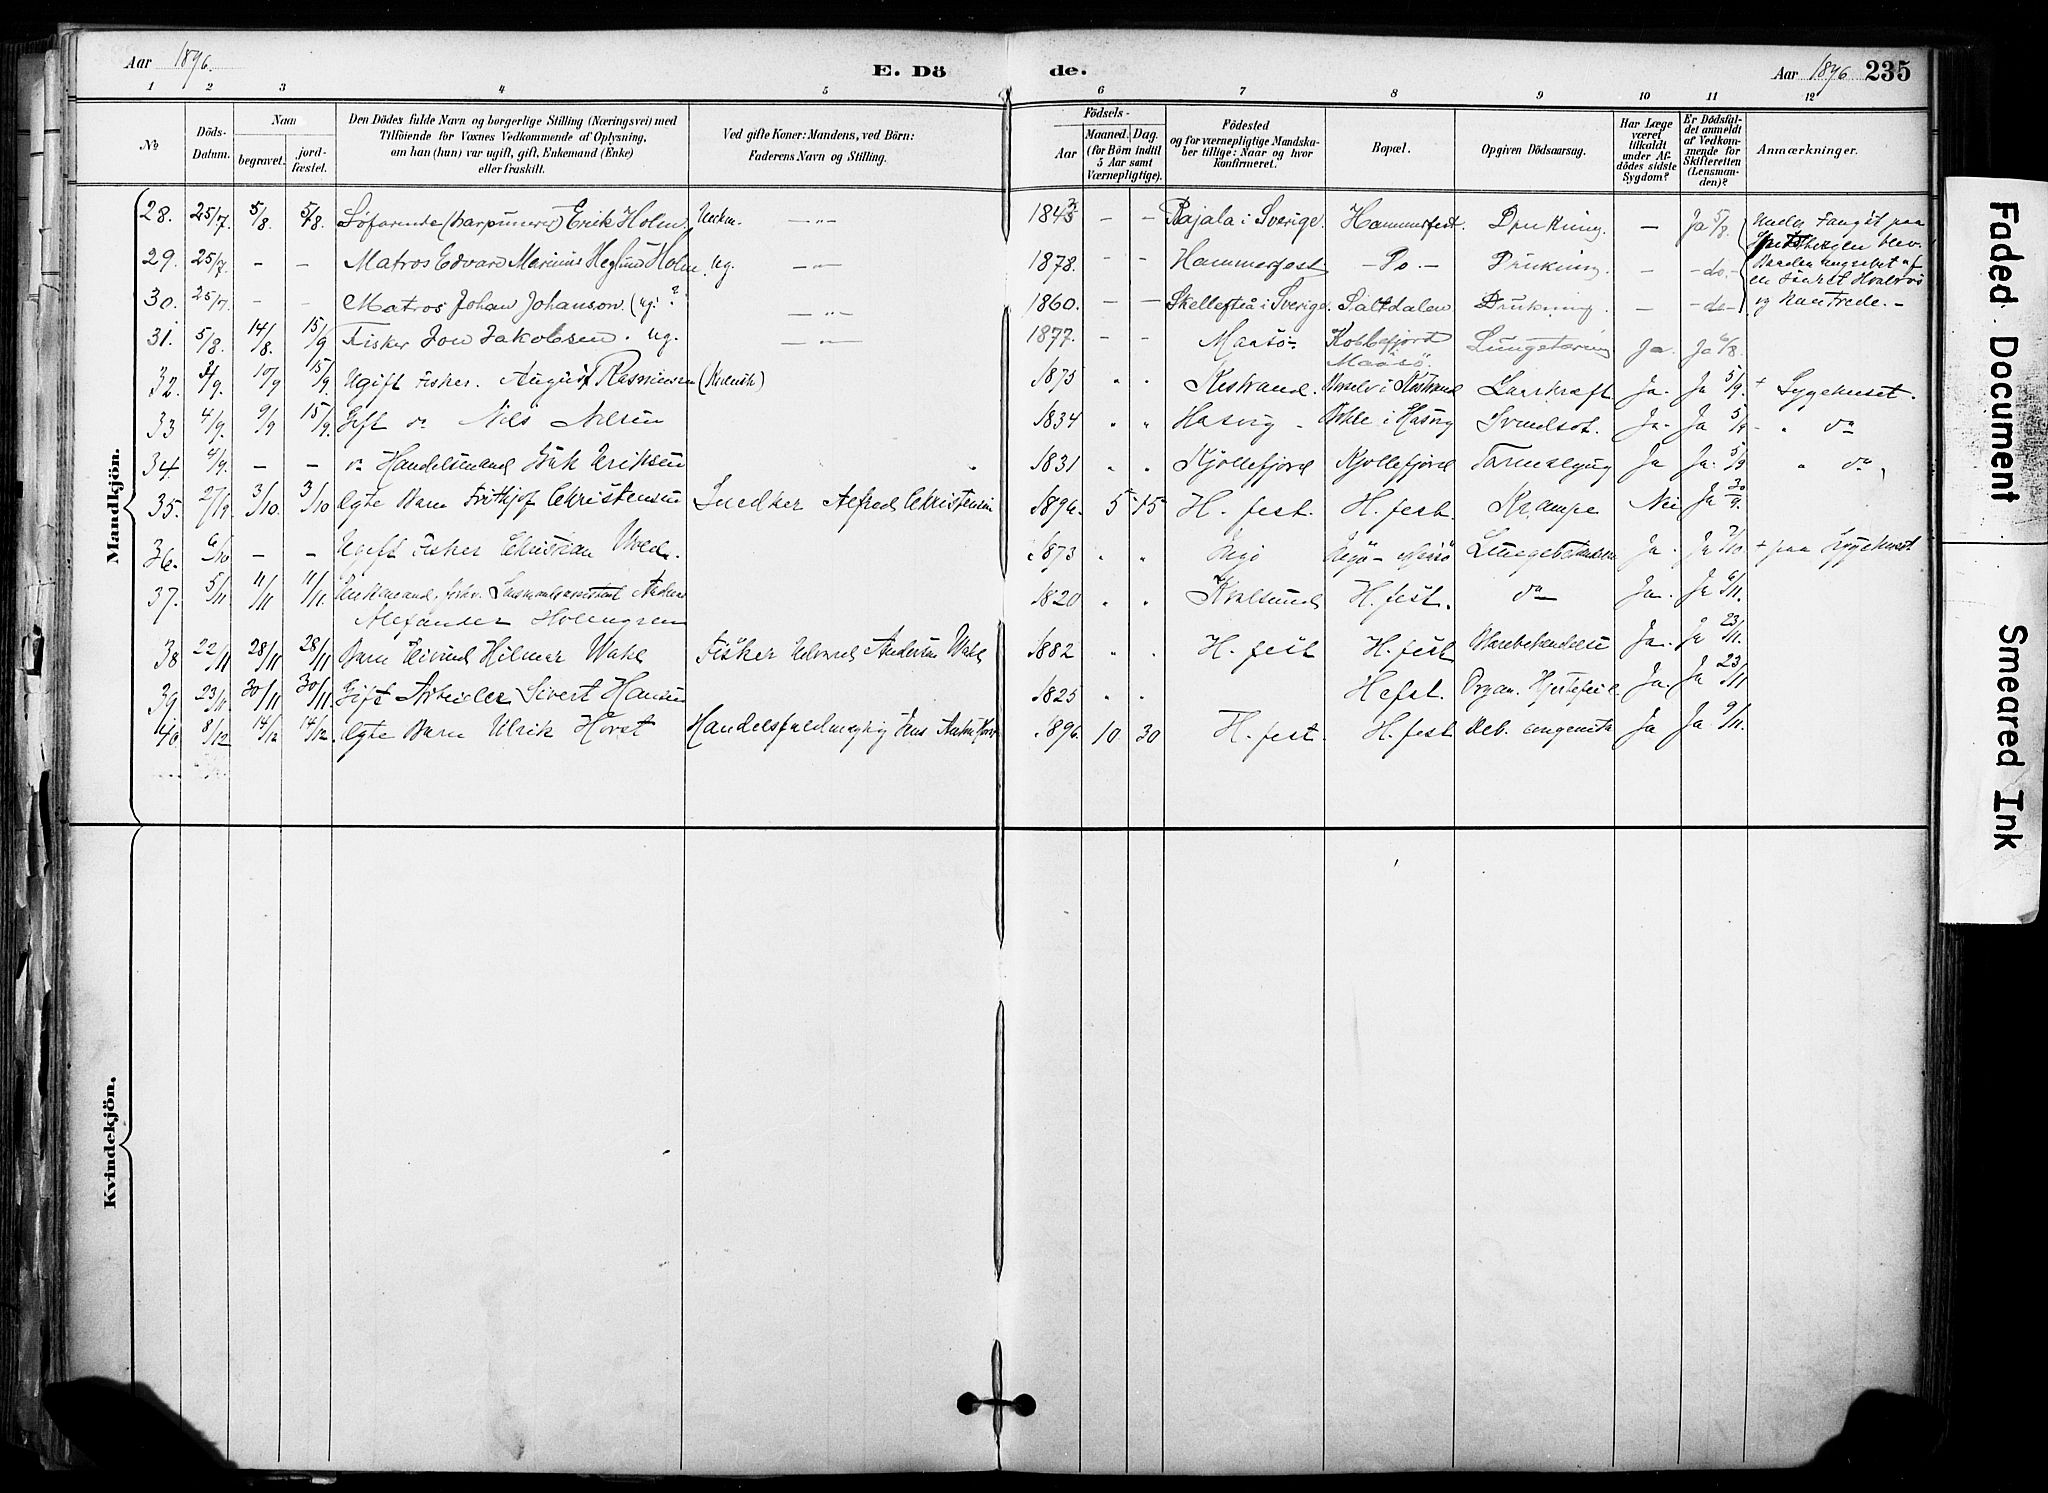 Aar 1896.
E. Dö
de.
Aar 1896 235
1 2 3 4 5 6 7 8 9 10 11 12
No
Döds-Datum.
Naar
begravet.
jord-fæstet.
Den Dödes fulde Navn og borgerlige Stilling (Næringsvei) med
Tilföiende for Voxnes Vedkommende af Oplysning,
om han (hun) var ugift, gift, Enkemand (Enke)
eller fraskilt.
Ved gifte Koner: Mandens, ved Börn:
Faderens Navn og Stilling.
Födsels-
Aar
Maaned. Dag.
(for Börn indtil
5 Aar samt
Værnepligtige).
Födested
og for værnepligtige Mandska-
ber tillige: Naar og hvor
konfirmeret.
Bopæl.
Opgiven Dödsaarsag.
Har Læge
været
tilkaldt
under Af-
dödes sidste
Sygdom?
Er Dödsfal-
det anmeldt
af Vedkom-
mende for
Skifteretten
(Lensman-
den)?
Anmærkninger.
Mandkjön.
28. 25/7. 5/8. 5/8. Söfarende (harpuner) Erik Holm. — „ — 1843 — — Pajala i Sverige. Hammerfest. Drukning. — Ja 5/8. Under Fangst paa
Spitsbergen blev
29. 25/7. — — Matros Edvard Marinius Heglund Holm. ug. — „ — 1878. — — Hammerfest — Do. — Drukning. — — do — Baaden angrebet af
en såret Hvalros
30. 25/7. — — Matros Johan Johanson. (ug. ? — „ — 1860. — — Skellefteå i Sverige. Saltdalen Drukning. — — do — og kantrede. —
31. 5/8. 14/8. 15/9 Fisker Jon Jakobsen. ug. — „ — 1877. — — Maasö — Kobbefjord
Maasö. Lungetæring Ja. Ja 6/8.
32. 3/9. 10/9 15/9. Ugift Fisker. August Rasmussen (Kvensk) 1875 „ „ Kistrand. i Kistrand Ja. Ja 5/9. + Sygehuset.
33 4/9. 9/9 15/9. Gift do Nils Nilsen 1834 „ „ Hasvig i Hasvig Ja. Ja 5/9 „ do
34. 4/9. — — do Handelsmand Erik Eriksen 1831 „ „ Kjöllefjord Kjöllefjord Ja Ja. 5/9 „ do
35. 27/9 3/10 3/10 Ægte Barn Frithjof Christensen Snedker Alfred Christensen 1896. 5 15 H. fest. H. fest. Krampe Nei Ja 30/9.
36. 6/10 — — Ugift Fisker Christian 1873 „ „ Ingö Ingö - Maasö Lungebetændelse Ja. Ja 7/10 + paa Sygehuset
37. 5/11 11/11 11/11. Enkemand, forhv. Lensmandsassistent Anders
Alexander Holmgren 1820 „ „ Kvalsund H. fest. do Ja. Ja 6/11.
38 22/11 28/11 28/11 Barn Eivind Hilmar Wahl Fisker Edvard Andersen Wahl 1882 „ „ H. fest H. fest Ja. Ja 23/11.
39 23/11 30/11 30/11. Gift Arbeider Sivert Hansen 1825 „ „ H.fest. Organ. Hjertefeil Ja. Ja 23/11
40 8/12 14/12 14/12. Ægte Barn Ulrik Horst Handelsfuldmægtig Jens Horst 1896. 10 30 H. fest. H. fest Deb. congenita Ja Ja 9/11.
Kvindekjön.
Faded Document
Smeared Ink